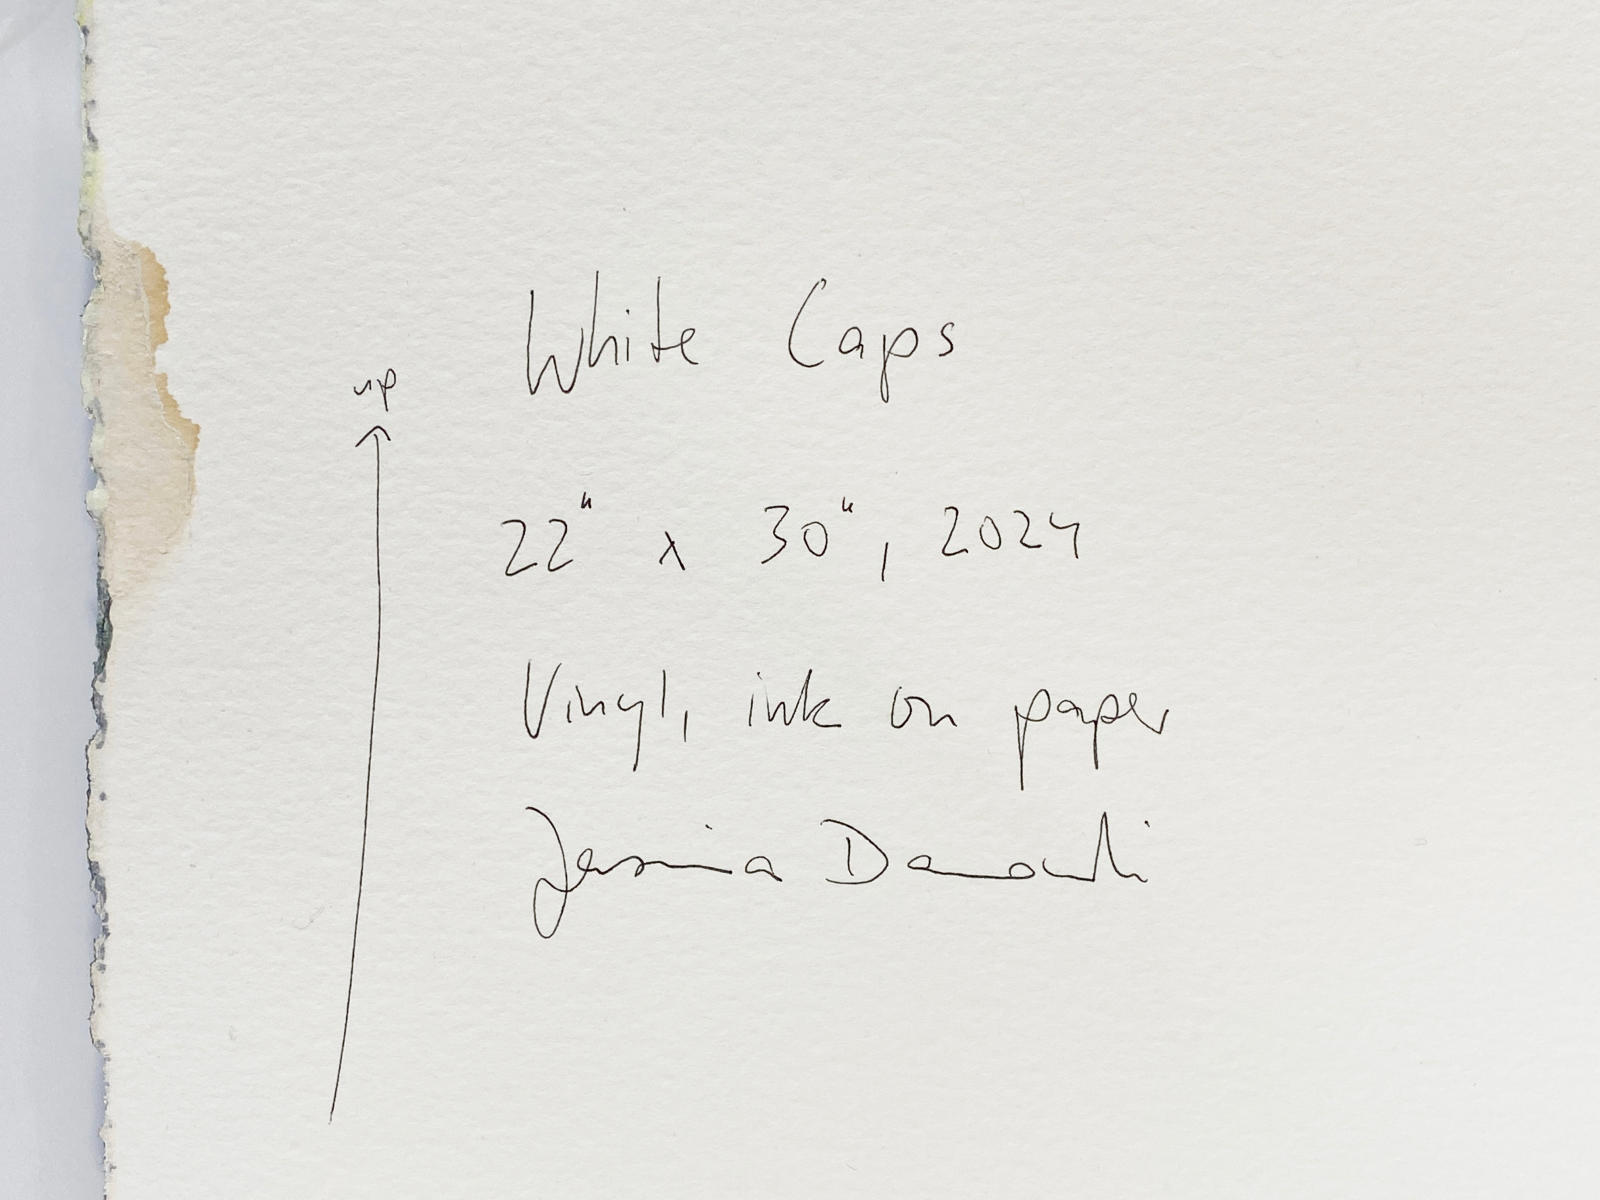 up
White Caps
22" x 30", 2024
Vinyl, ink on paper
Jessica